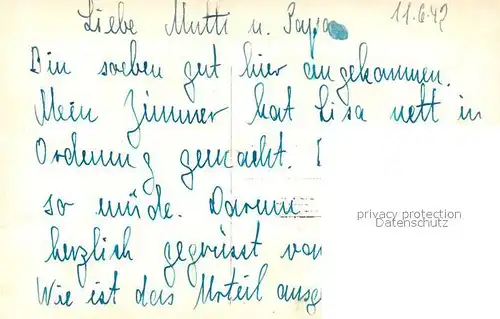 11.6.42
Liebe Mutti u. Papa
Bin soeben gut hier angekommen.
Mein Zimmer hat Lisa nett in
Ordnung gemacht.
so müde. Darum
privacy protection
Datenschutz
herzlich gegrüsst von
Wie ist das Urteil ausge